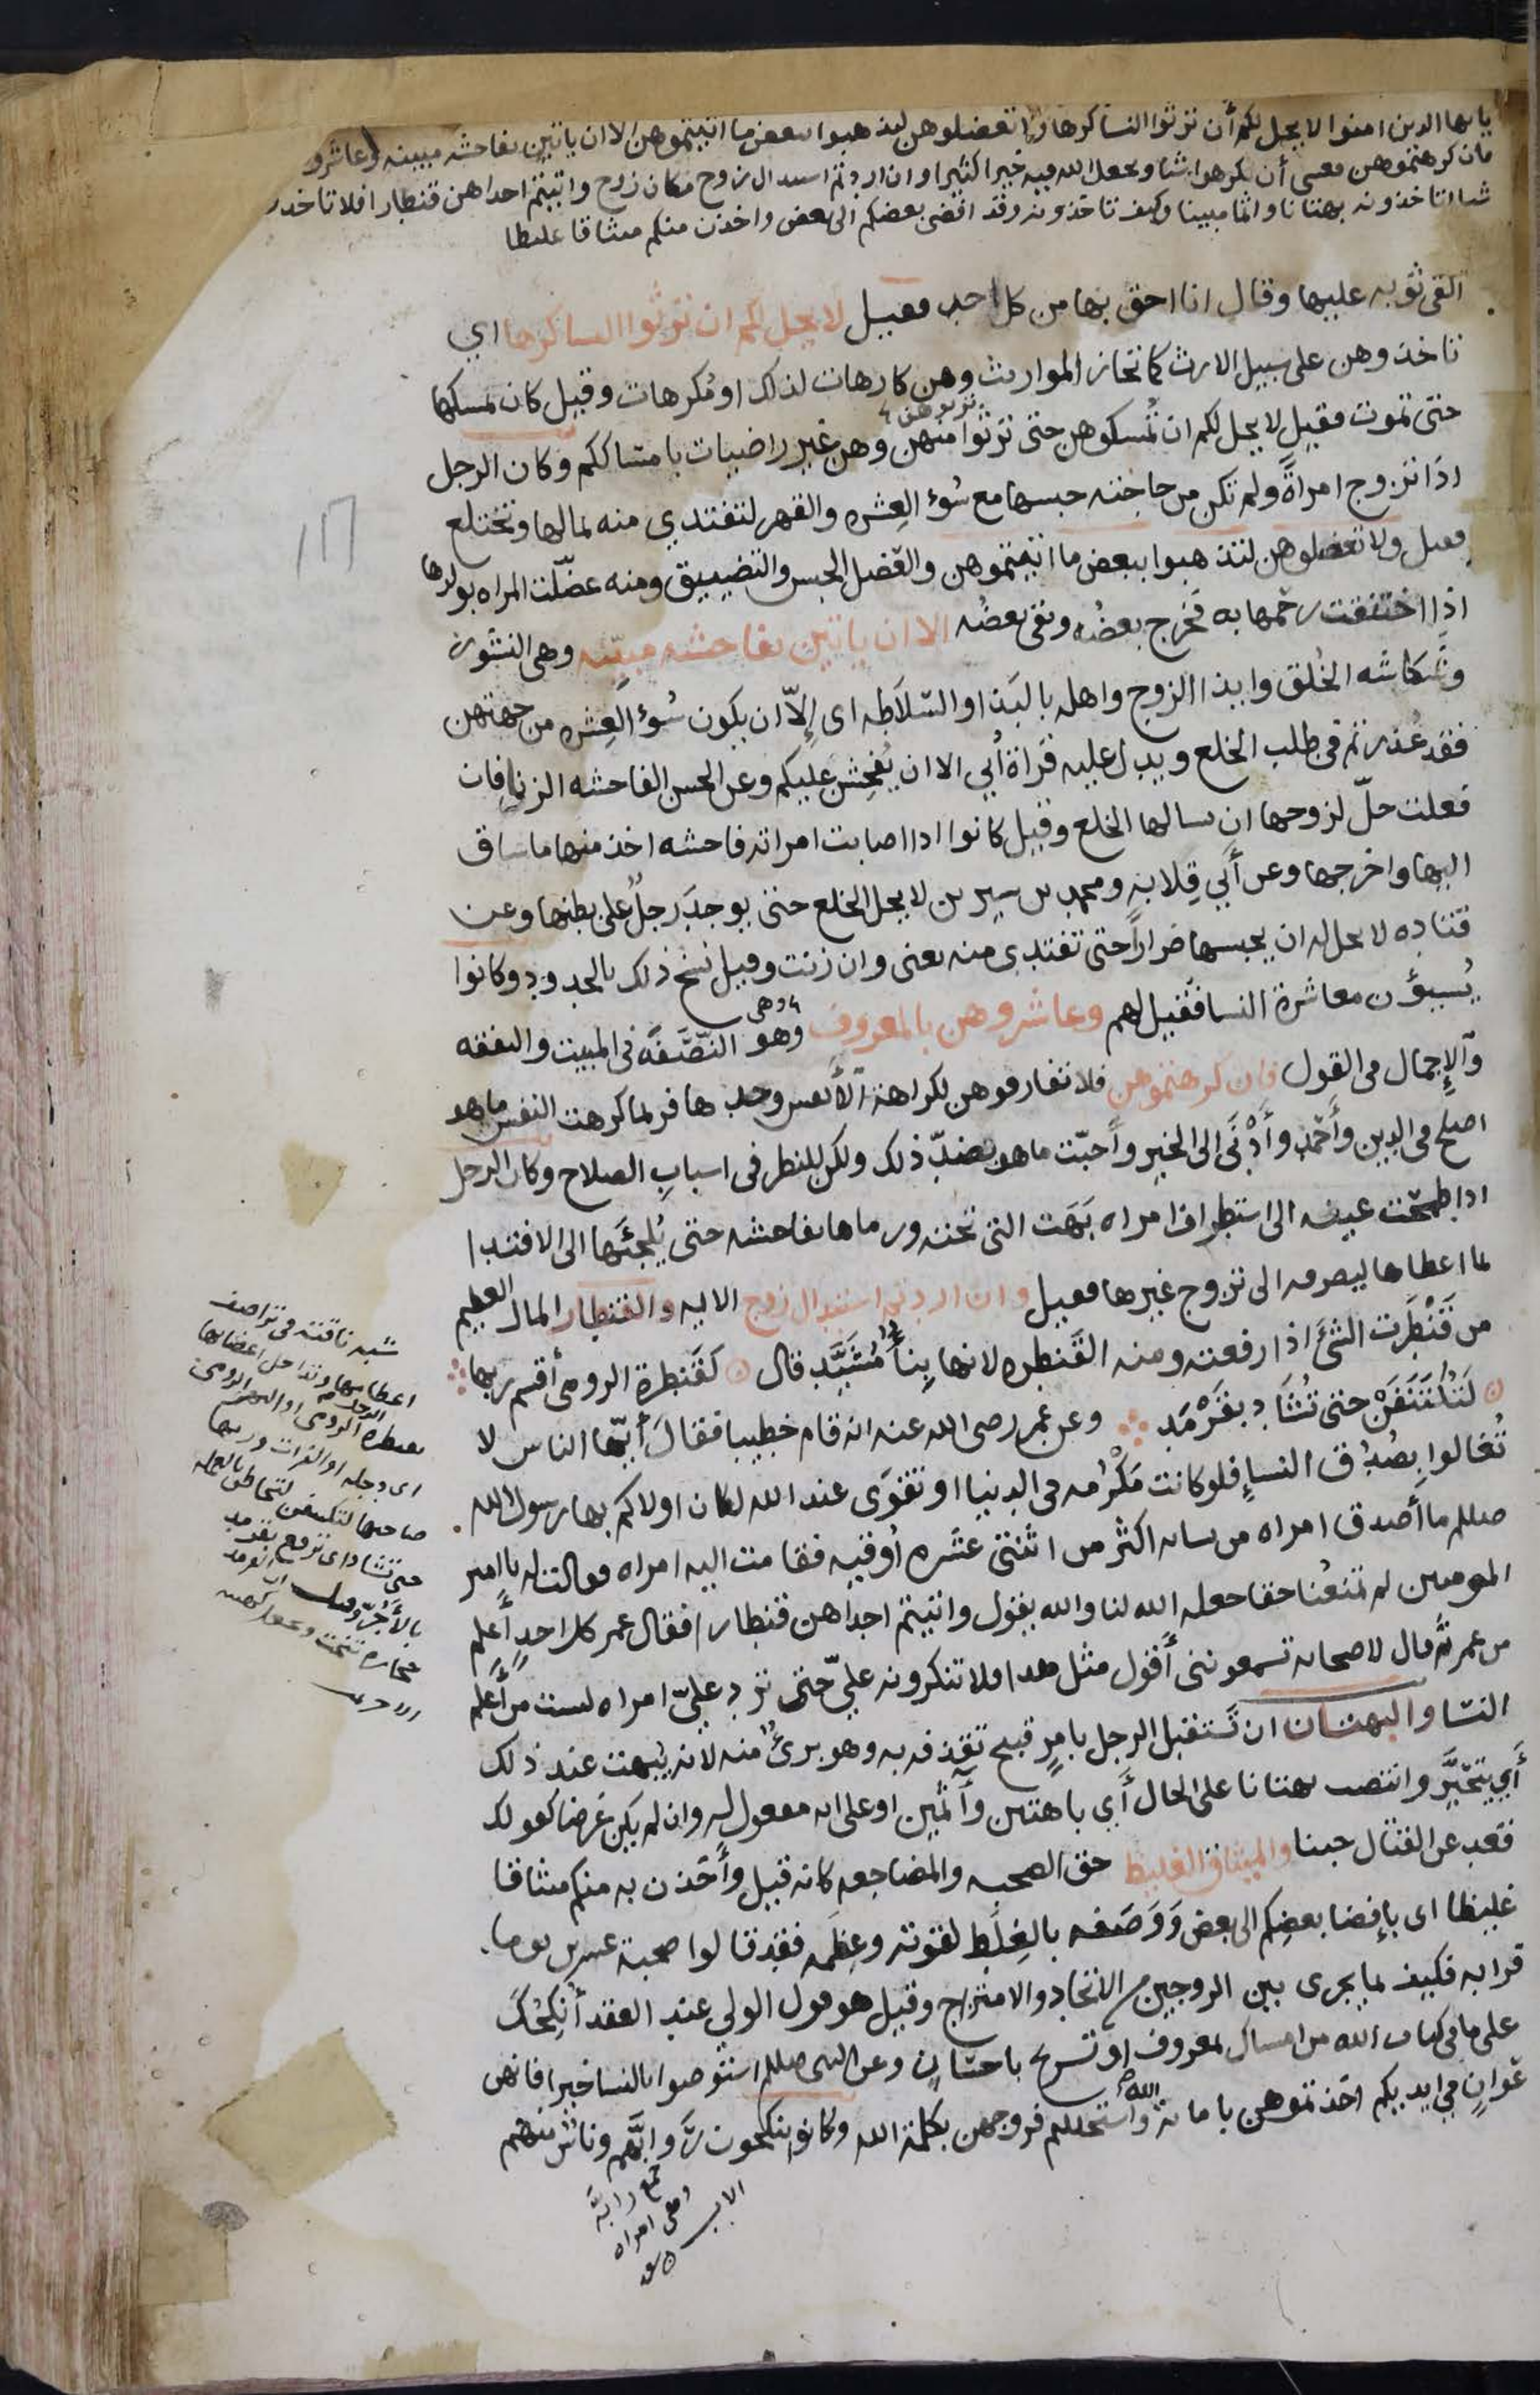 يا يها الدين امنوا لا يحل لكم أن ترثوا النسا كرها ولا تعضلوهن لتذهبوا ببعض ما اتيتموهن الا ان ياتين بفاحشه مبينه وعاشرو
فان كرهتموهن فعسى أن تكرهوا شيا ويجعل الله فيه خيرا كثيرا وان اردتم استبدال زوج مكان زوج واتيتم احداهن قنطارا فلا تاخذو
شيا اتاخذونه بهتانا واثما مبينا وكيف تاخذونه وقد افضى بعضكم الى بعض واخذن منكم ميثاقا غليظا
القى ثوبه عليها وقال انا احق بها من كل احد فقيل لا يحل لكم ان ترثوا النسا كرها اي
تاخذوهن على سبيل الارث كما تحاز المواريث وهن كارهات لذلك او مُكرهات وقيل كان يمسكها
حتى تموت فقيل لا يحل لكم ان تُمسكوهن حتى ترثوا منهن وهن غير راضيات بامساككم وكان الرجل
اذا تزوج امراةً ولم تكن من حاجته حبسها مع سُوء العِشره والقهر لتفتدي منه بمالها وتختلع
فقيل ولا تعضلوهن لتذهبوا ببعض ما اتيتموهن والعَضل الحبس والتضييق ومنه عضّلت المراه بولدها
اذا اختنقت رحمها به فخرج بعضُه وبقى بعضُه الا ان ياتين بفاحشه مبيّنه وهى النشوز
وشكاسَه الخُلق وايذا الزوج واهله بالبَذا والسّلاطه اى إلاّ ان يكون سُوء العِشره من جهتهن
فقد عُذرتم فى طلب الخلع ويدل عليه قراة أُبي الا ان يُفحِشن عليكم وعن الحسن الفاحشه الزنا فان
فعلت حلّ لزوجها ان يسالها الخلع وقيل كانوا اذا اصابت امراته فاحشه اخذ منها ما ساق
اليها واخرجها وعن أبي قِلابه ومحمد بن سيرين لا يحل الخلع حتى يوجدَ رجلٌ على بطنها وعن
قتاده لا يحل له ان يحبسها ضراراً حتى تفتدى منه يعنى وان زنت وقيل نسخ ذلك بالحدود وكانوا
يُسيؤن معاشرة النسا فقيل لهم وعاشروهن بالمعروف وهو النّصَفَه فى المبيت والنفقه
والإجمال فى القول فان كرهتموهن فلا تفارقوهن لكراهة الأنفس وحدها فربما كرهت النفس ما هو
اصلح فى الدين وأحمد وأدْنَى الى الخير وأحبّت ما هو بضدّ ذلك ولكن للنظر فى اسبابِ الصلاح وكان الرجل
اذا طمحَت عينه الى استطراف امراه بَهَت التى تحته ورماها بفاحشه حتى يُلجئَها الى الافتدا
بما اعطاها ليصرفه الى تزوج غيرها فقيل وان اردتم استبدال زوج الايه والقنطار المال العظيم
من قَنْطَرت الشئَ اذا رفعته ومنه القَنطره لانها بِنآءٌ مُشَيَّد قال كقَنطرة الرومىّ أقسم ربها
لَتُكْتَنَفَنْ حتى تُشَادَ بقَرْمَد وعن عمر رضى الله عنه انه قام خطيبا فقالَ أيّها الناس لا
تُغالوا بِصُدُق النسآءِ فلو كانت مَكْرُمه فى الدنيا او تقوَى عند الله لكان اولاكم بها رسول الله
صللم ما أصدق امراه من نسائه اكثر من اثنتى عشَره اُوقيه فقامت اليه امراه فقالت له يا امير
المومنين لم تمنعُنا حقا جعله الله لنا والله يقول واتيتم احداهن قنطارا فقال عمر كل احدٍ أعلم
من عمر ثم قال لاصحابه تسمعوننى أقول مثل هذا فلا تنكرونه عليّ حتى تردّ عليّ امراه ليست من أعلم
النسا والبهتان ان تَستقبل الرجل بامرٍ قبيح تقذفه به وهو برئٌ منه لانه يُبهت عند ذلك
أي يتحيَّر وانتصب بهتانا على الحال أي باهتين وآثمين او على انه مفعول له وان لم يكن غرضا كقولك
قعد عن القتال جبنا والميثاق الغليظ حق الصحبه والمضاجعه كانه قيل وأخذن به منكم ميثاقا
غليظا اى بإفضا بعضِكم الى بعض ووَصَفه بالغِلَظ لقوته وعِظَمه فقد قالوا صحبة عشرين يوما
قرابه فكيف بما يجرى بين الزوجين من الاتحاد والامتزاج وقيل هو قول الولي عند العقد أنكحتُكَ
على ما فى كتاب الله من امساك بمعروف او تسريح باحسان وعن النبى صللم استوصوا بالنسا خيرا فانهن
عَوانٍ في ايديكم اخذتموهن بامانة الله واستحللتم فروجهن بكلمة الله وكانوا ينكحون روابّهم وناسٌ منهم
شبه ناقته فى تراصف
اعضائها وتداخل اعضائها
بقنطرة الرومى
اى دجله او الفرات وربها
صاحبها لتكتنفن
حتى تشاد اى ترفع بقرمد
بالآجُرّ وقيل
حجارة
جمع رابّة
وهى امراه
الاب